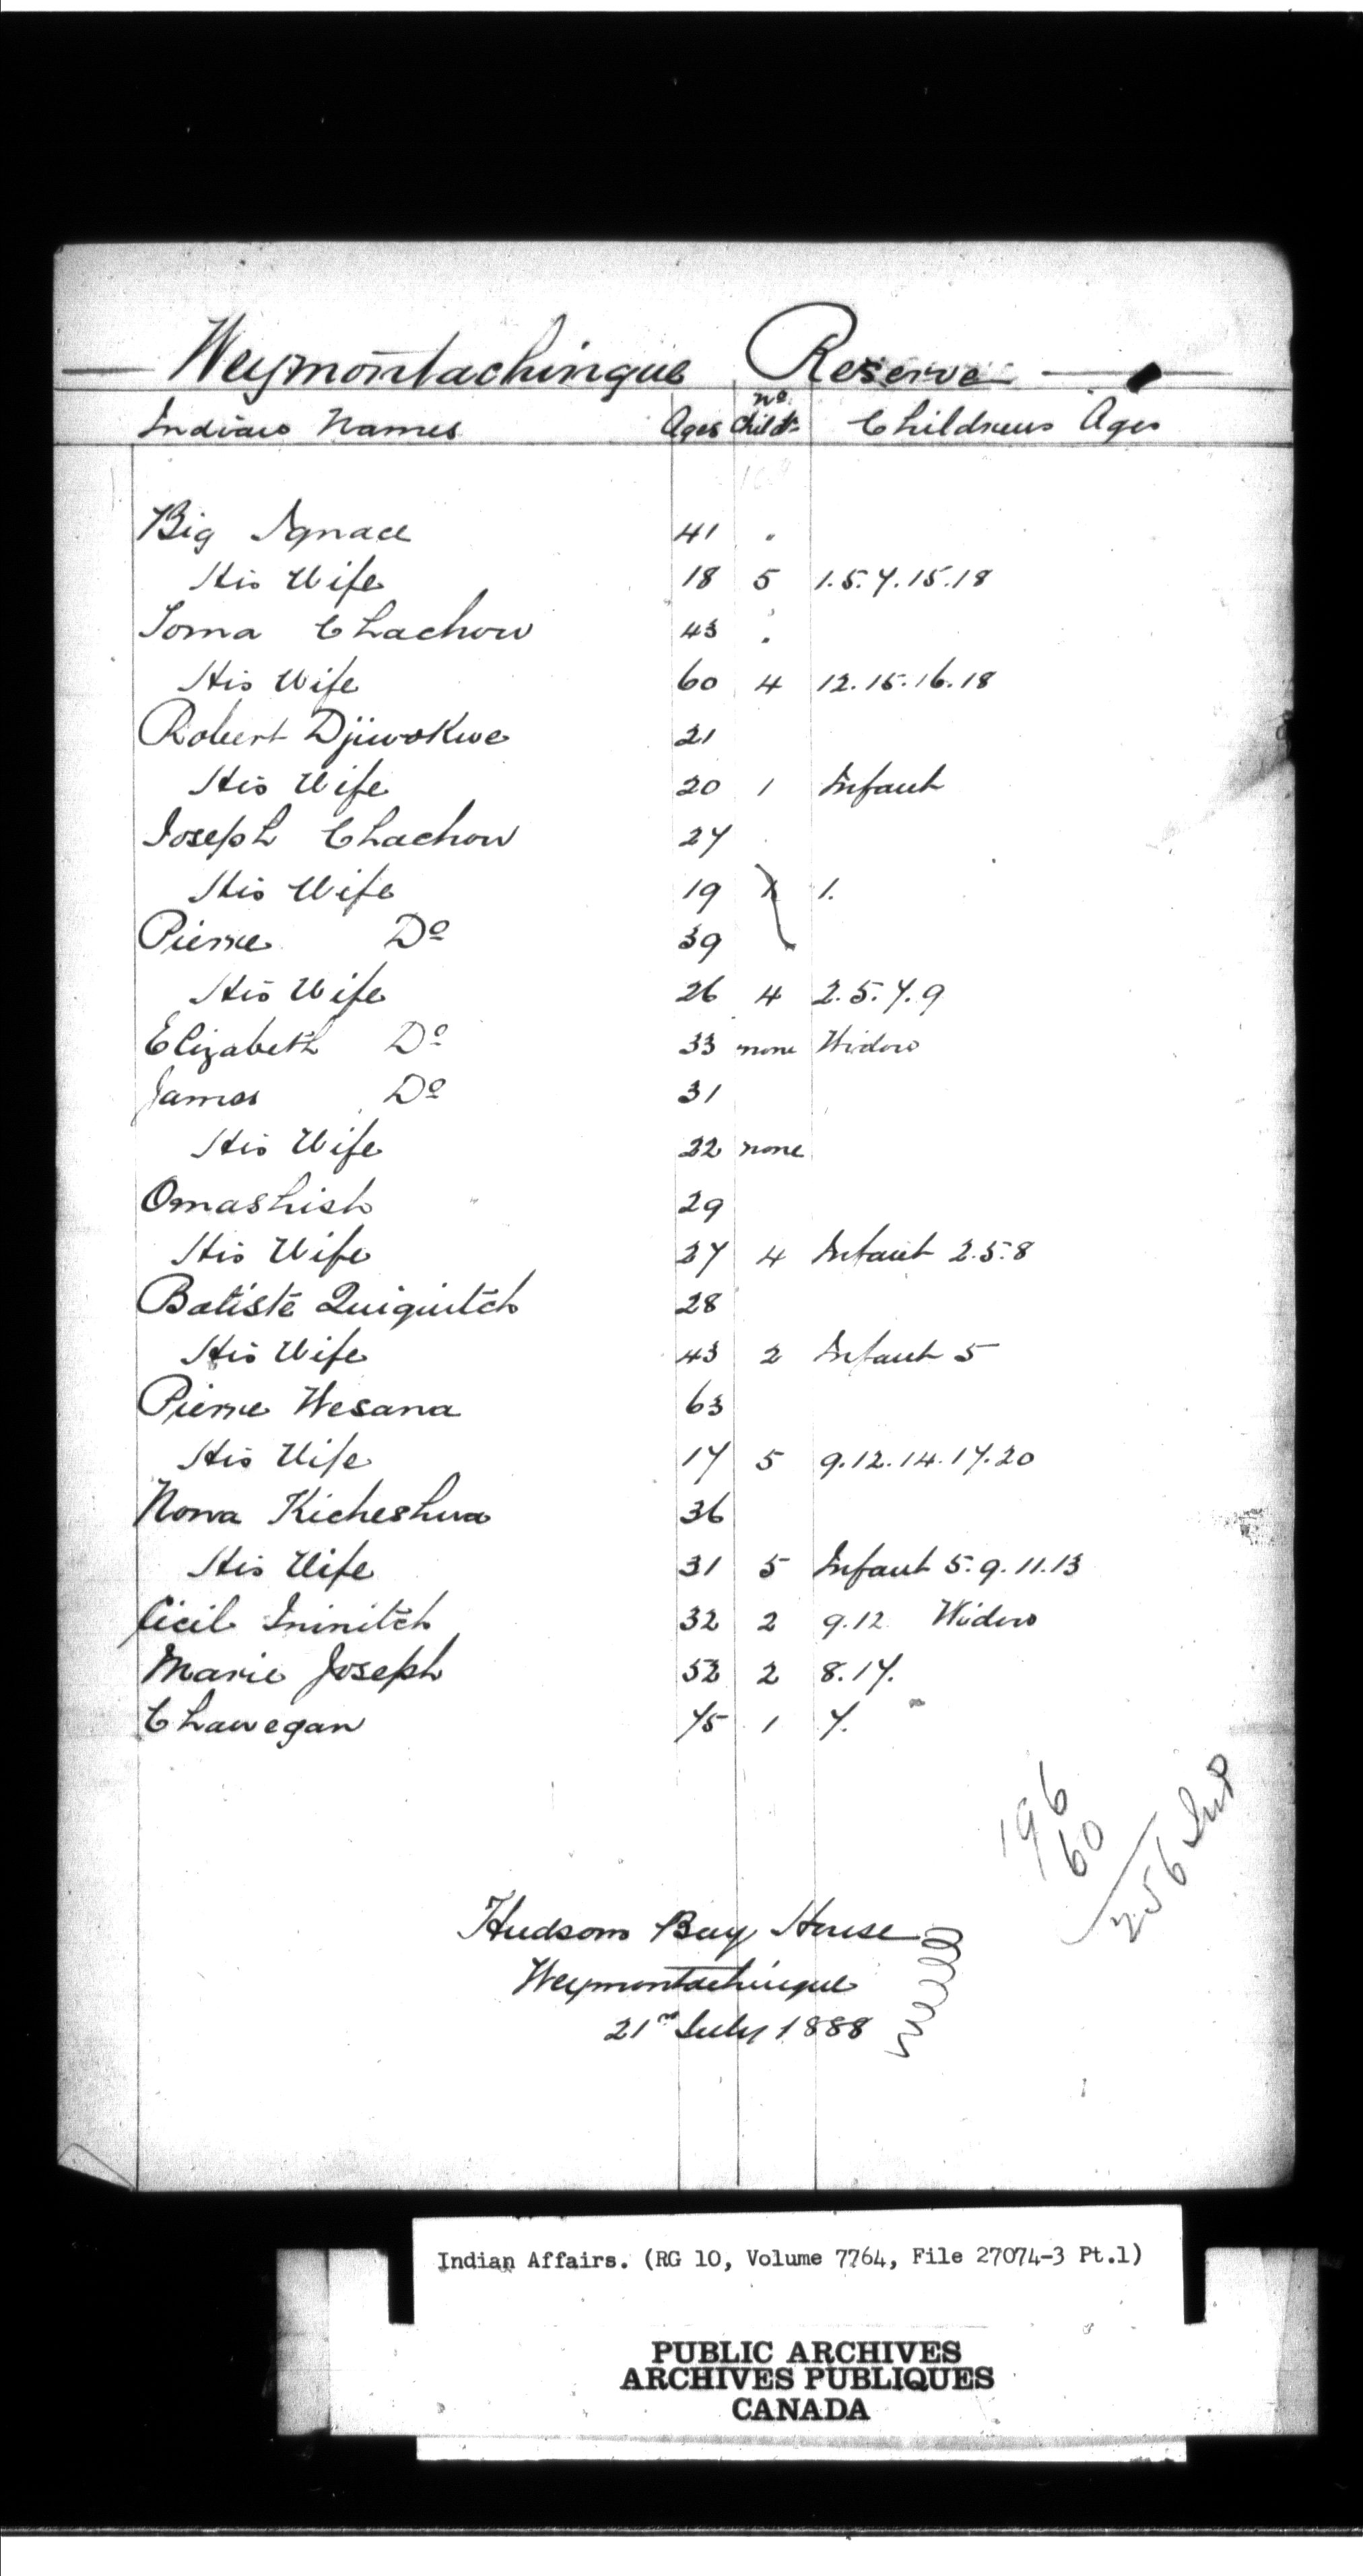 Weymontachingue Reserve
Indians Names Ages no. Child'n Childrens Ages
Big Ignace 41 "
His Wife 18 5 1.5.7.15.18
Toma Chachow 43 "
His Wife 60 4 12.15.16.18
Robert Djiwokwe 21
His Wife 20 1 Infant
Joseph Chachow 27
His Wife 19 1 1.
Pierre Do 39
His Wife 26 4 2.5.7.9
Elizabeth Do 33 none Widow
James Do 31
His Wife 22 none
Omashish 29
His Wife 27 4 Infant 2.5.8
Batiste Quiquitch 28
His Wife 43 2 Infant 5
Pierre Wesana 63
His Wife 17 5 9.12.14.17.20
Nowa Kicheshwa 36
His Wife 31 5 Infant 5.9.11.13
Cicil Ininitch 32 2 9.12 Widow
Marie Joseph 52 2 8.17.
Chawegan 75 1 7.
196
60
256 Ind
Hudsons Bay House
Weymontachingue
21st July 1888
Indian Affairs. (RG 10, Volume 7764, File 27074-3 Pt.1)
PUBLIC ARCHIVES
ARCHIVES PUBLIQUES
CANADA